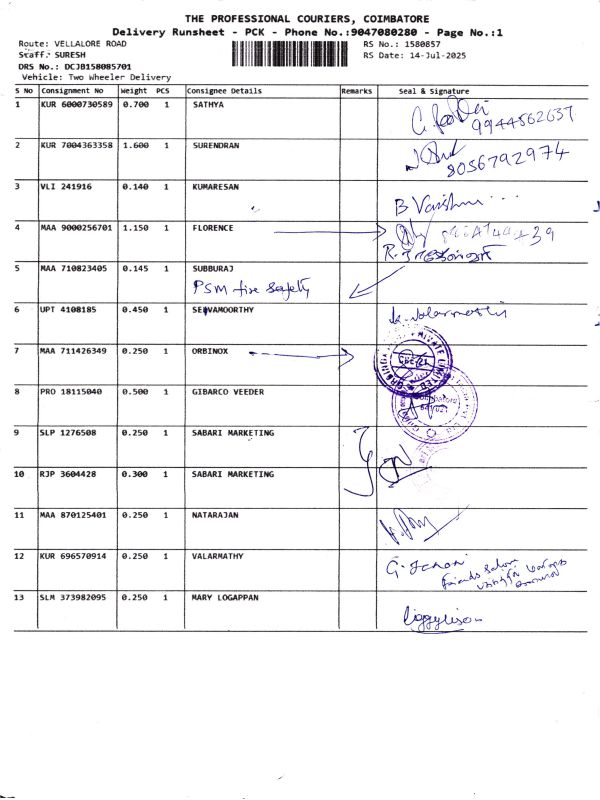 THE PROFESSIONAL COURIERS, COIMBATORE
Delivery Runsheet - PCK - Phone No.:9047080280 - Page No.:1
Route: VELLALORE ROAD
RS No.: 1580857
Staff: SURESH
RS Date: 14-Jul-2025
DRS No.: DCJB158085701
Vehicle: Two Wheeler Delivery
S No Consignment No Weight PCS Consignee Details Remarks Seal & Signature
1 KUR 6000730589 0.700 1 SATHYA
9944862637
2 KUR 7004363358 1.600 1 SURENDRAN
8056792974
3 VLI 241916 0.140 1 KUMARESAN
B
4 MAA 9000256701 1.150 1 FLORENCE
5 MAA 710823405 0.145 1 SUBBURAJ
PSM fire safety
6 UPT 4108185 0.450 1 SELVAMOORTHY
7 MAA 711426349 0.250 1 ORBINOX
8 PRO 18115040 0.500 1 GIBARCO VEEDER
9 SLP 1276508 0.250 1 SABARI MARKETING
10 RJP 3604428 0.300 1 SABARI MARKETING
11 MAA 870125401 0.250 1 NATARAJAN
12 KUR 696570914 0.250 1 VALARMATHY
13 SLM 373982095 0.250 1 MARY LOGAPPAN